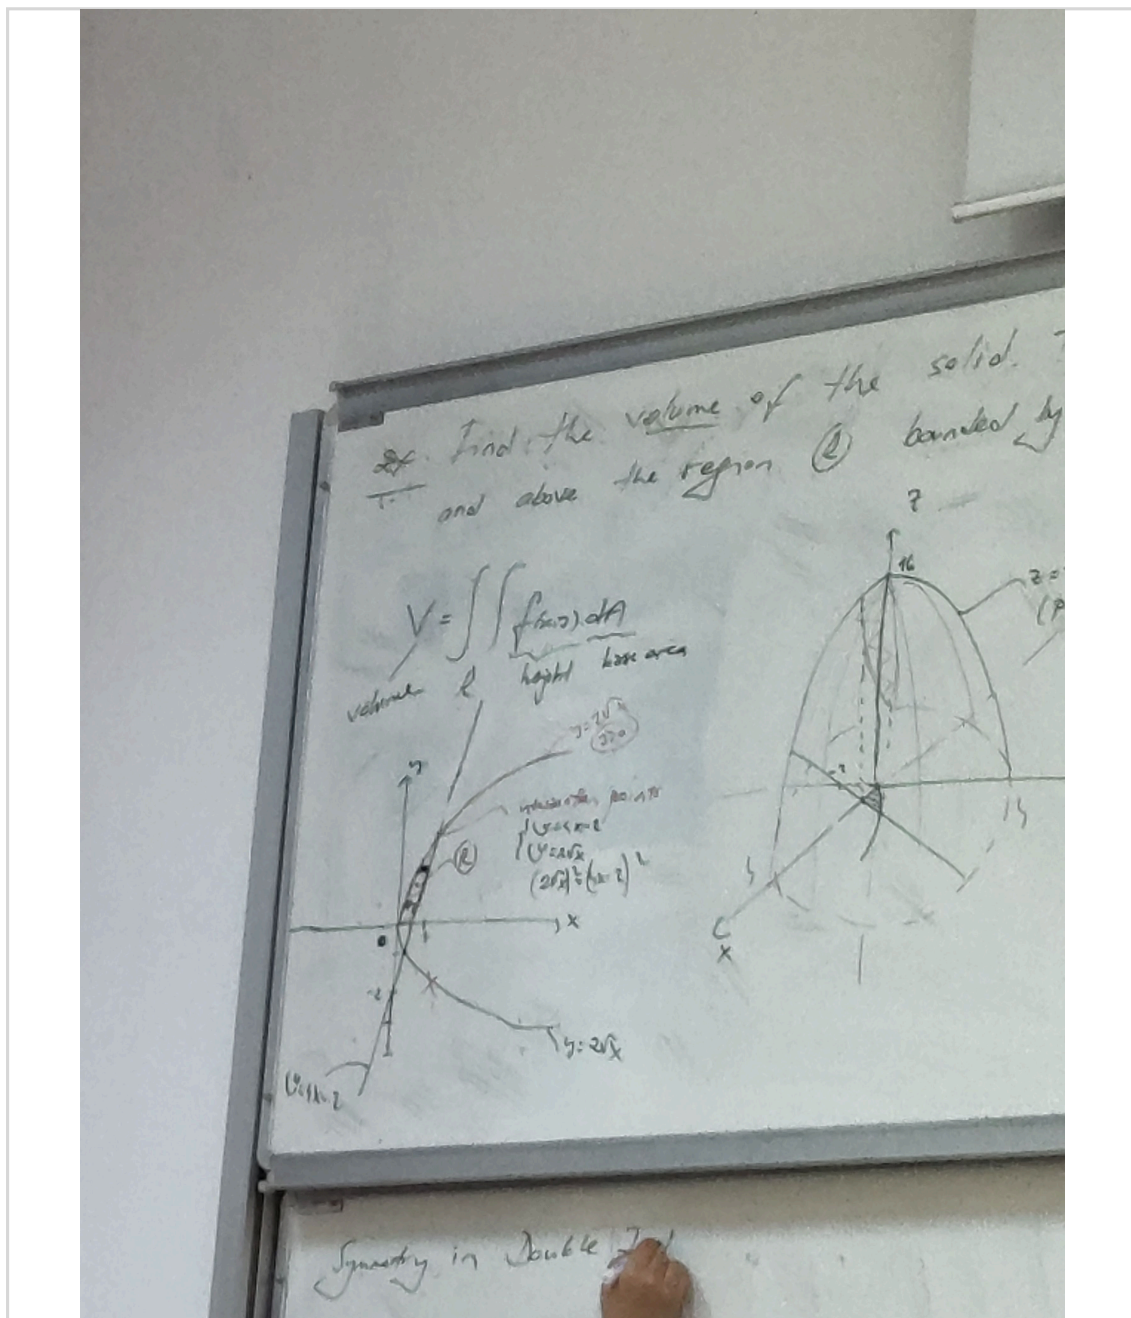 Ex. Find the volume of the solid.
and above the region R bounded by
V = ∫∫ f(x,y) dA
volume R height base area
y
y=2√x
y≥0
intersection points
y=4x-2
y=2√x
(2√x)²=(4x-2)²
R
x
1
-2
y=2√x
y=4x-2
z
16
z=
-2
4
4
x
Symmetry in Double